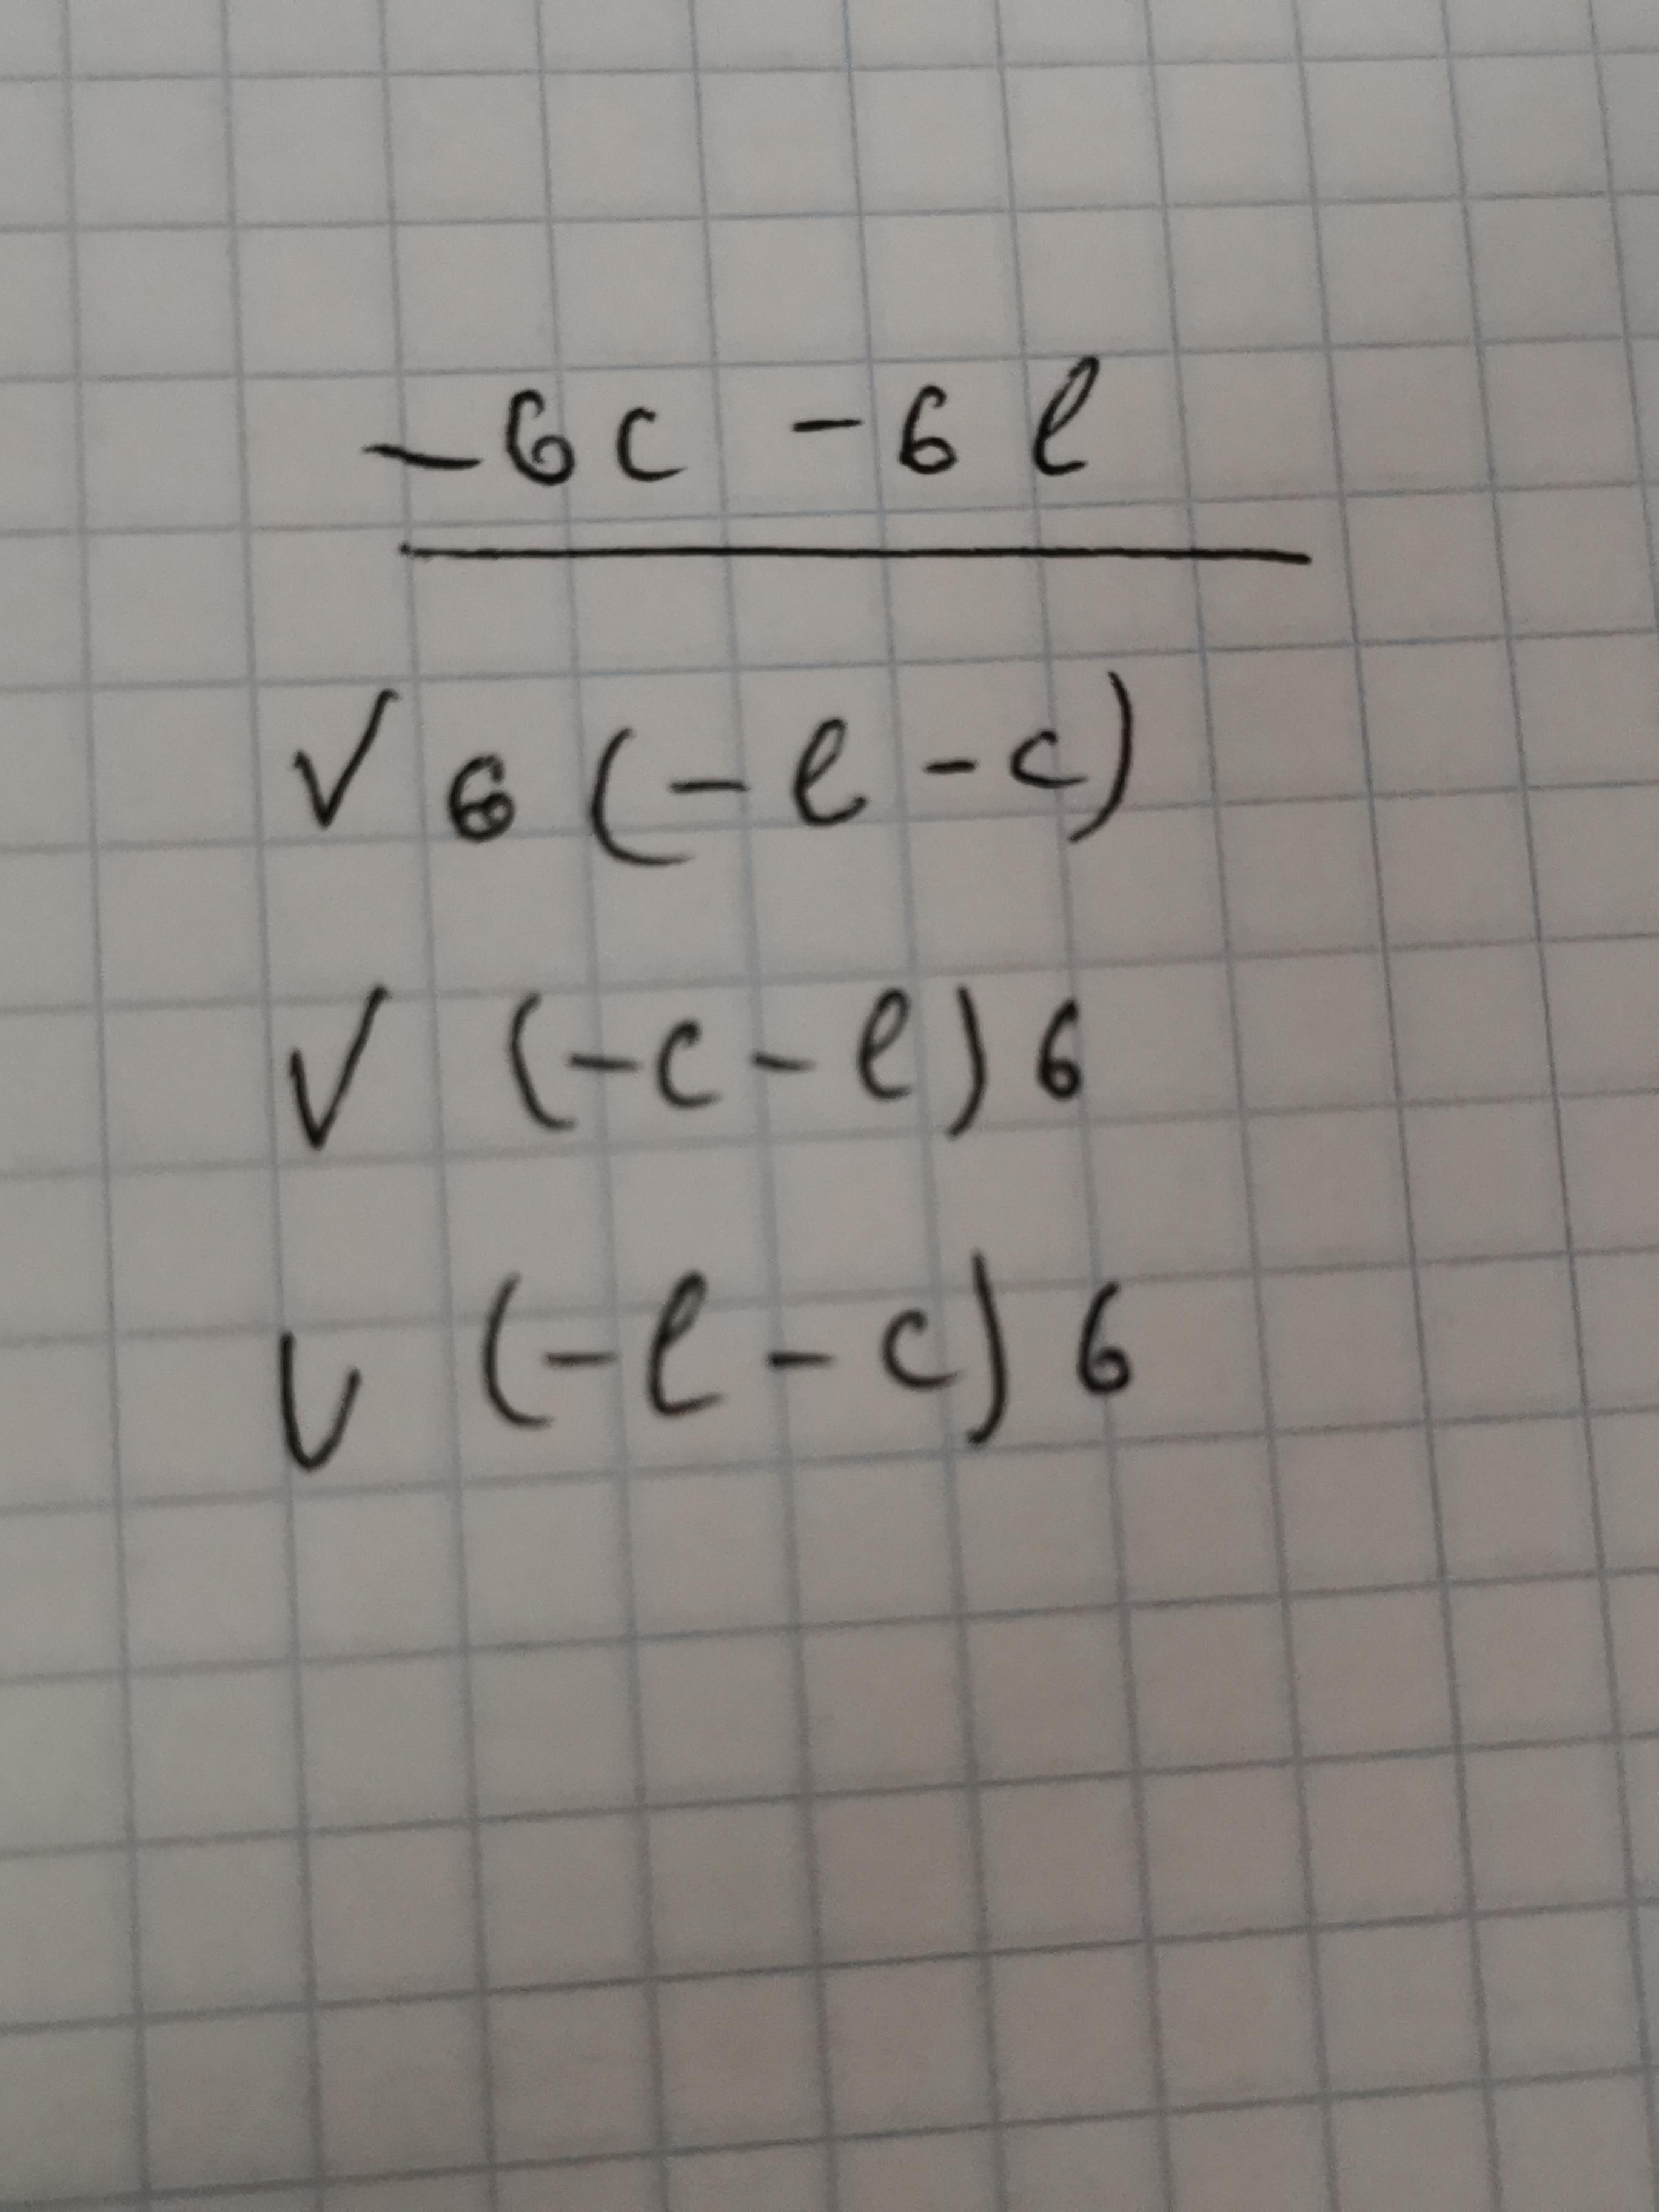 -6c -6l
√ 6(-l-c)
√ (-c-l)6
√ (-l-c)6